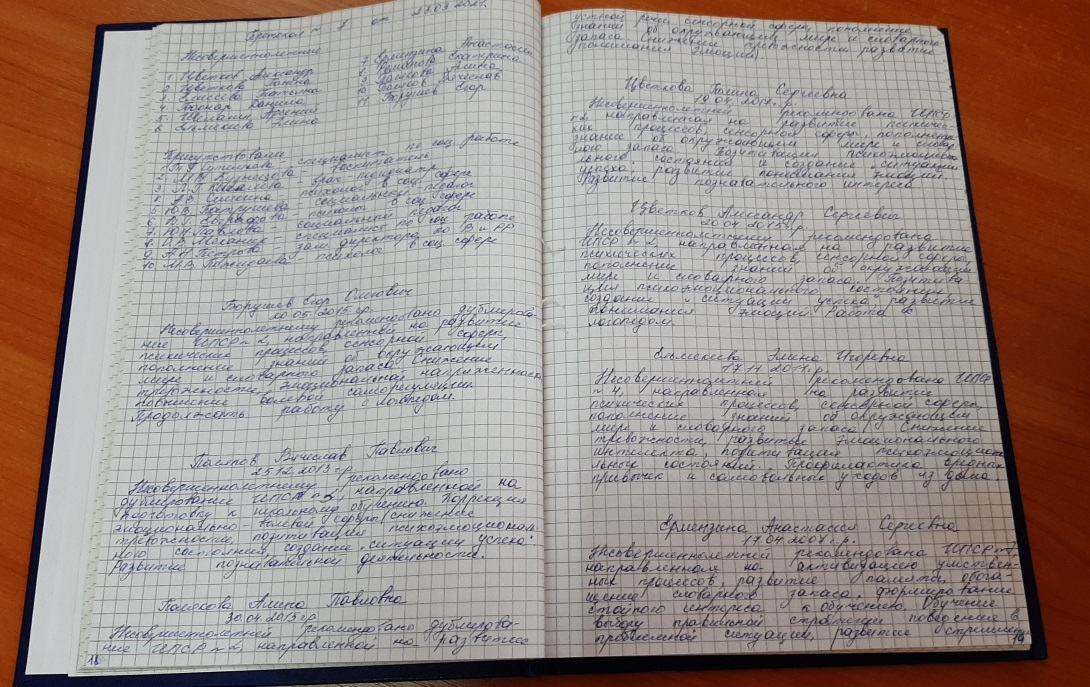 Протокол № 8 от 27.09.2021.
Несовершеннолетние:
1. Цветков Александр
2. Цветкова Галина
3. Власова Татьяна
4. Даниил
5. Арсений
6. Элина
7. Ермензина Анастасия
8. Романова Екатерина
9. Полякова Алина
10. Поляпов Вячеслав
11. Борушев Егор
Присутствовали:
1. специалист по соц. работе
2. Кузнецова - воспитатель
3. врач-педиатр
4. А.В. психолог в соц. сфере
5. Ю.В. социальный педагог
6. психолог в соц. сфере
7. Ю.Н. Павлова - социальный педагог
8. О.В. специалист по соц. работе
9. А.Н. Петрова зам. директора по В и РР
10. М.В. психолог в соц. сфере
Борушев Егор Олегович
20.05.2015 г.р.
Несовершеннолетнему рекомендовано дублирова-
ние ИПСР № 2, направленной на развитие
психических процессов, сенсорной сферы,
пополнение знаний об окружающем
мире и словарного запаса. Снижение
тревожности, эмоциональной напряженности
повышение волевой саморегуляции.
Продолжать работу с логопедом.
Поляпов Вячеслав Павлович
2013 г.р.
Несовершеннолетнему рекомендовано
дублирование ИПСР № 2, направленной на
подготовку к школьному обучению. Коррекция
эмоционально-волевой сферы, снижение
тревожности, позитивация психоэмоциональ-
ного состояния, создание "ситуации успеха".
Развитие познавательной деятельности.
Полякова Алина Павловна
30.04.2013 г.р.
Несовершеннолетней рекомендовано дублирова-
ние ИПСР № 2, направленной на развитие
18
устной речи, сенсорной сферы, пополнение
знаний об окружающем мире и словарного
запаса. Снижение тревожности, развитие
понимания эмоций.
Цветкова Галина Сергеевна
19.04.2017 г.р.
Несовершеннолетней рекомендовано ИПСР
№ 2, направленная на развитие психичес-
ких процессов, сенсорной сферы, пополнение
знаний об окружающем мире и словар-
ного запаса. Позитивация психоэмоцио-
нального состояния и создание "ситуации
успеха", развитие понимания эмоций.
Развитие познавательного интереса.
Цветков Александр Сергеевич
20.04.2015 г.р.
Несовершеннолетнему рекомендовано
ИПСР № 2, направленной на развитие
психических процессов, сенсорной сферы,
пополнении знаний об окружающем
мире и словарного запаса. Позитива-
ция психоэмоционального состояния
создание "ситуации успеха", развитие
понимания эмоций. Работа с
логопедом.
Элина Игоревна
17.11.2011 г.р.
Несовершеннолетней рекомендовано ИПСР
№ 4, направленной на развитие
психических процессов, сенсорной сферы,
пополнение знаний об окружающем
мире и словарного запаса. Снижение
тревожности, развитие эмоционального
интеллекта, позитивация психоэмоцио-
нальных состояний. Профилактика вредных
привычек и самовольных уходов из дома.
Ермензина Анастасия Сергеевна
17.04.2007 г.р.
Несовершеннолетней рекомендовано ИПСР № 1,
направленной на активизацию умствен-
ных процессов, развитие памяти, обога-
щение словарного запаса, формирование
стойкого интереса к обучению. Обучение
выбору правильной стратегии поведения в
проблемной ситуации, развитие